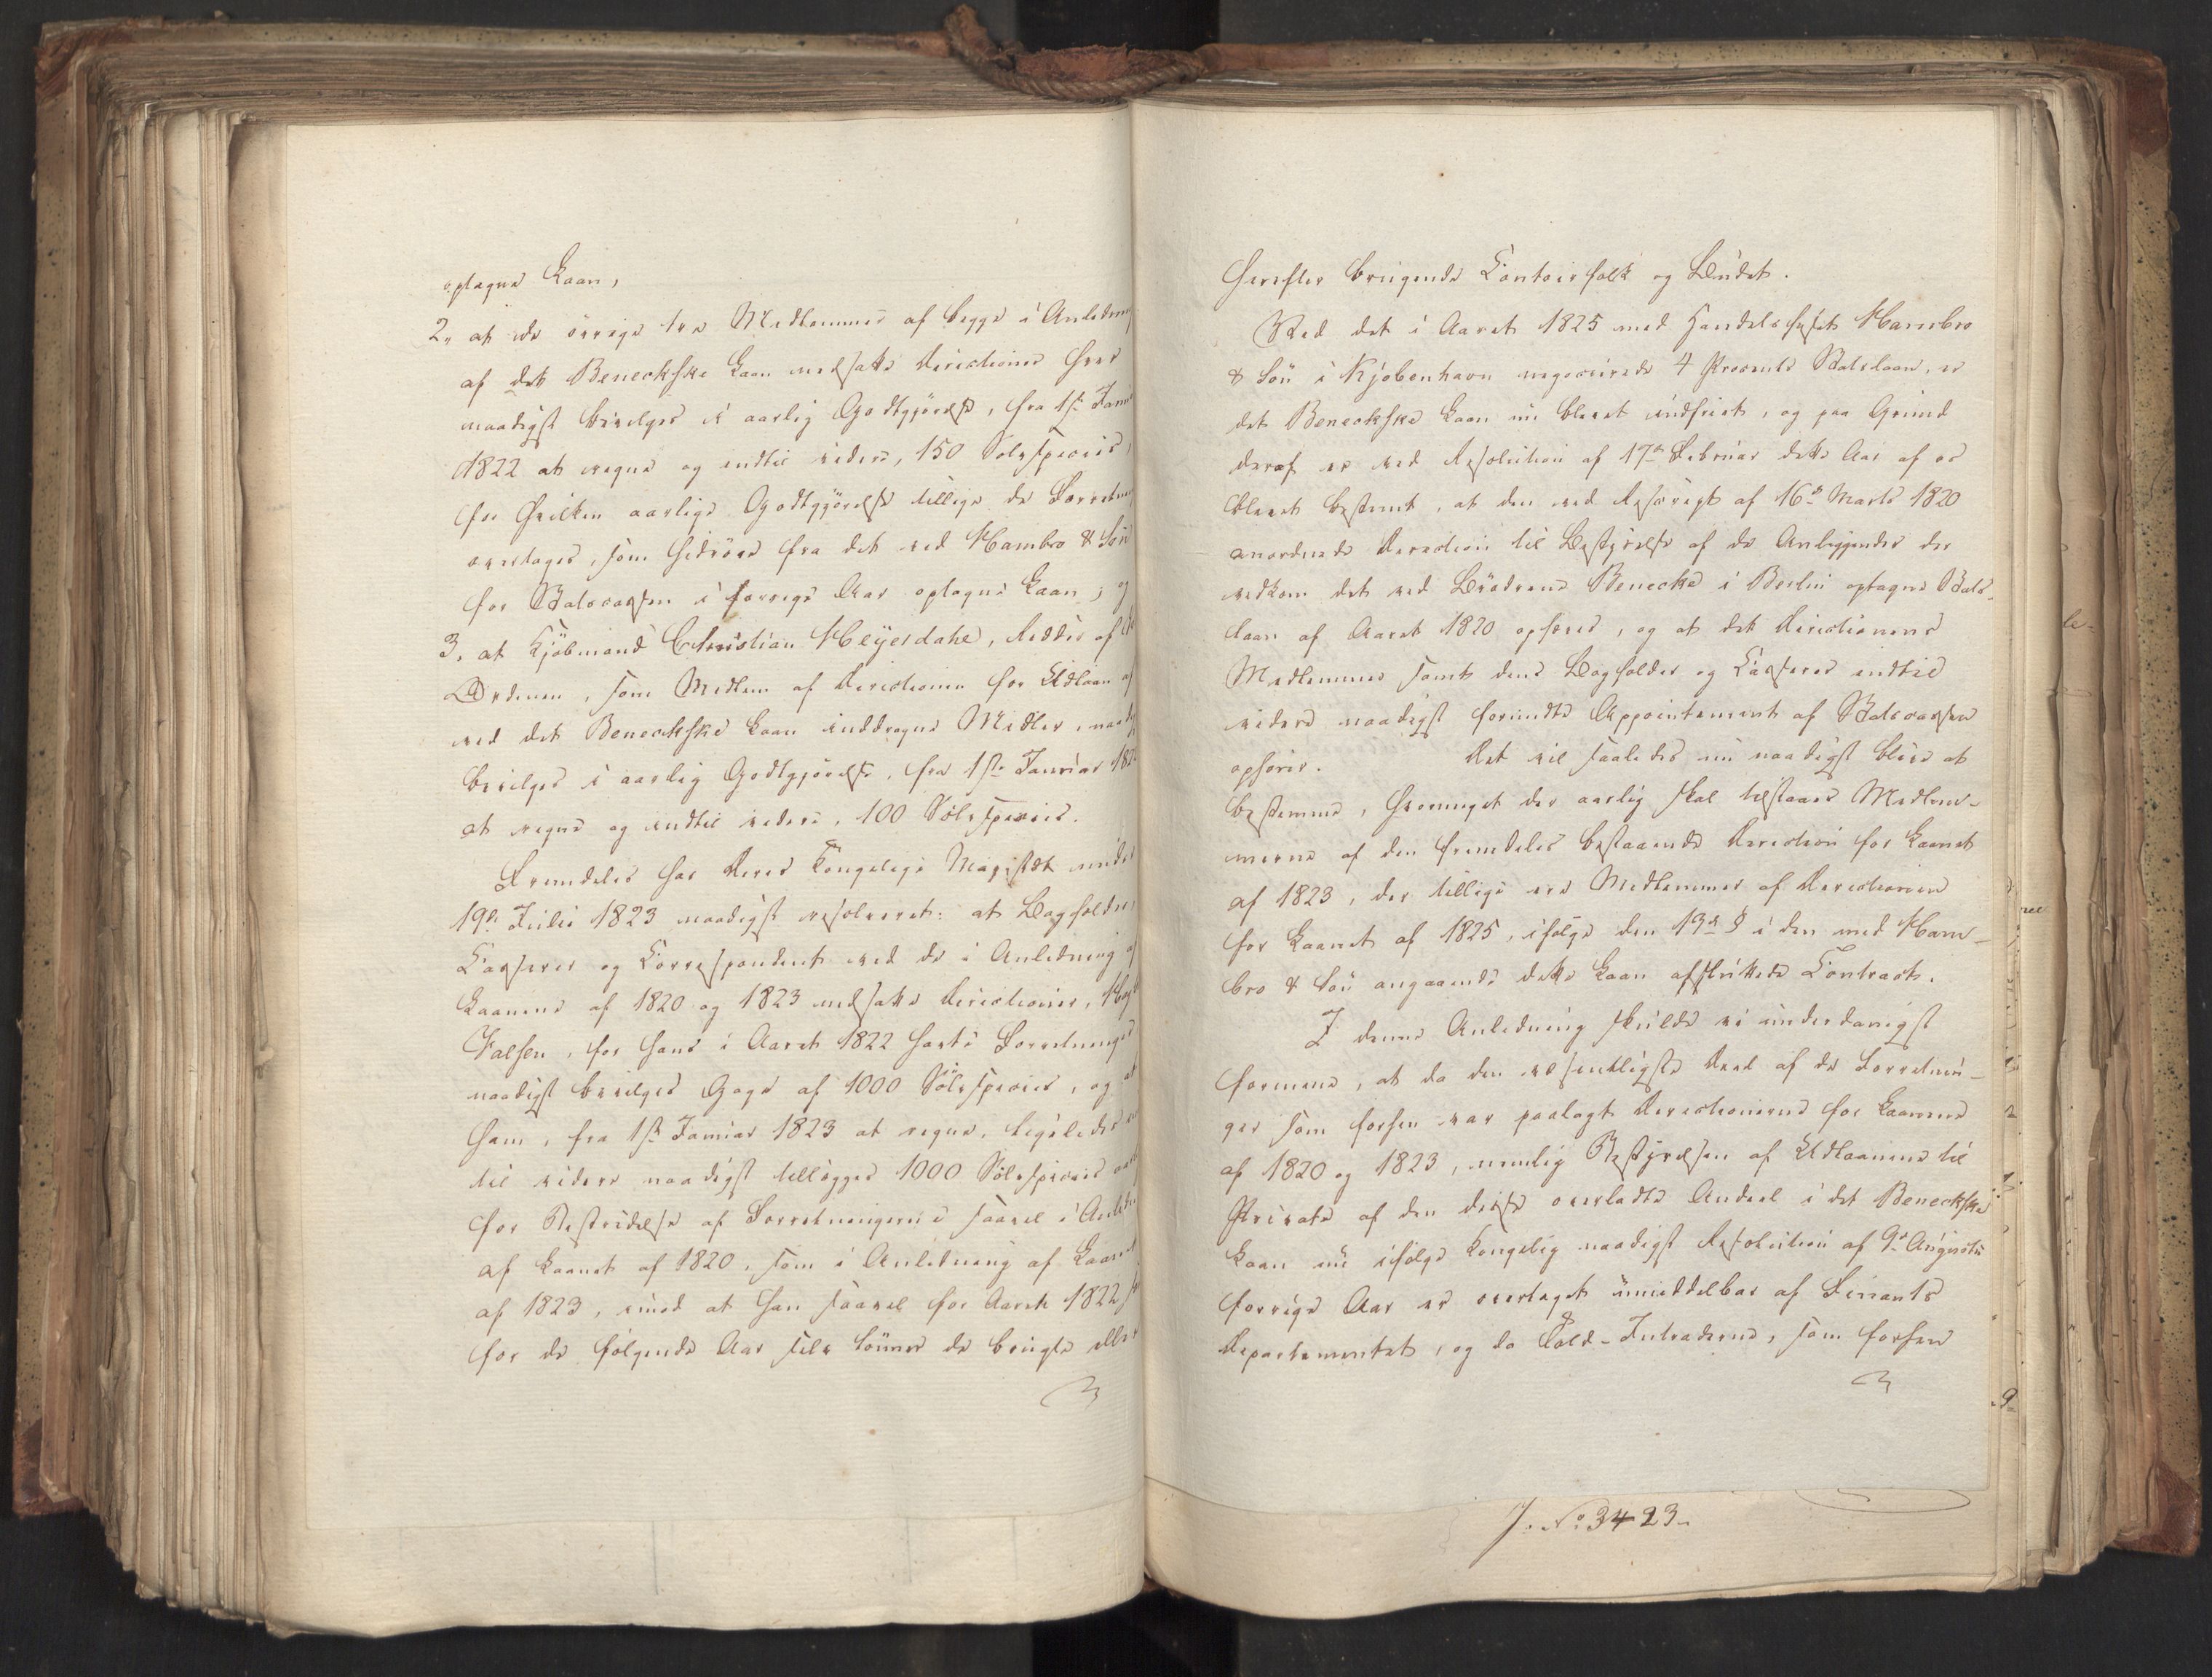 optagne Laan,
2, at de övrige tre Medlemmer af begge i Anledning
af det Beneckske Laan nedsatte Directioner hver
naadigst bevilges i aarlig Godtgjörelse, fra 1ste Janu
1822 at regne og indtil videre, 150 Sölvspecier,
for hvilken aarlige Godtgjörelse tillige de Forretning
overtages, som hidröre fra det ved Hambro & Sön
for Statscassen i forrige Aar optagne Laan; og
3, at Kjöbmand Christian Meyerdahl, Ridder af
Ordenen, som Medlem af Directionen for Udlaan af
ved det Beneckske Laan inddragne Midler, naadig
bevilges i aarlig Godtgjörelse, fra 1ste Januar 182
at regne og indtil videre, 100 Sölvspecier.
Fremdeles har Deres Kongelige Majestæt under
19de Julii 1823 naadigst resolveret: at Bogholder
Casserer og Correspondent ved de i Anledning af
Laanene af 1820 og 1823 nedsatte Directioner,
Falsen, for hans i Aaret 1822 havte Forretninger
naadigst bevilges Gage af 1000 Sölvspecier, og at
ham, fra 1ste Januar 1823 at regne, ligeledes ind
til videre naadigst tillægges 1000 Sölvspecier aarl
for Bestridelse af Forretningerne saavel i Anledn
af Laanet af 1820, som i Anledning af Laanet
af 1823, imod at han saavel for Aaret 1822 so
for de fölgende Aar selv lönner de brugte eller
herefter brugende Contoirfolk og Budet.
Ved det i Aaret 1825 med Handelshuset Hambro
& Sön i Kjöbenhavn negocierede 4 Procents Statslaan, er
det Beneckske Laan nu blevet indfriet, og paa Grund
deraf er ved Resolution af 17de Februar dette Aar af os
blevet bestemt, at den ved Rescript af 16de Marts 1820
anordnede Direction til Bestyrelse af de Anliggender der
vedkom det ved Brödrene Benecke i Berlin optagne Stats-
laan af Aaret 1820 ophæves, og at det Directionens
Medlemmer samt dens Bogholder og Casserer indtil
videre naadigst forundte Appointement af Statscassen
ophörer. Det vil saaledes nu naadigst blive at
bestemme, hvormeget der aarlig skal tilstaaes Medlem-
merne af den fremdeles bestaaende Direction for Laanet
af 1823, der tillige ere Medlemmer af Directionen
for Laanet af 1825, ifölge den 13de § i den med Ham-
bro & Sön angaaende dette Laan afsluttede Contract.
I denne Anledning skulde vi underdanigst
formene, at da den væsentligste Deel af de Forretnin-
ger som forhen var paalagt Directionerne for Laanene
af 1820 og 1823, nemlig Bestyrelsen af Udlaanene til
Private af den disse overladte Andeel i det Beneckske
Laan nu ifölge Kongelig naadigst Resolution af 9de Augusti
forrige Aar er overtaget umiddelbar af Finants
Departementet, og da Told-Intraderne, som forhen
J. No. 3423.